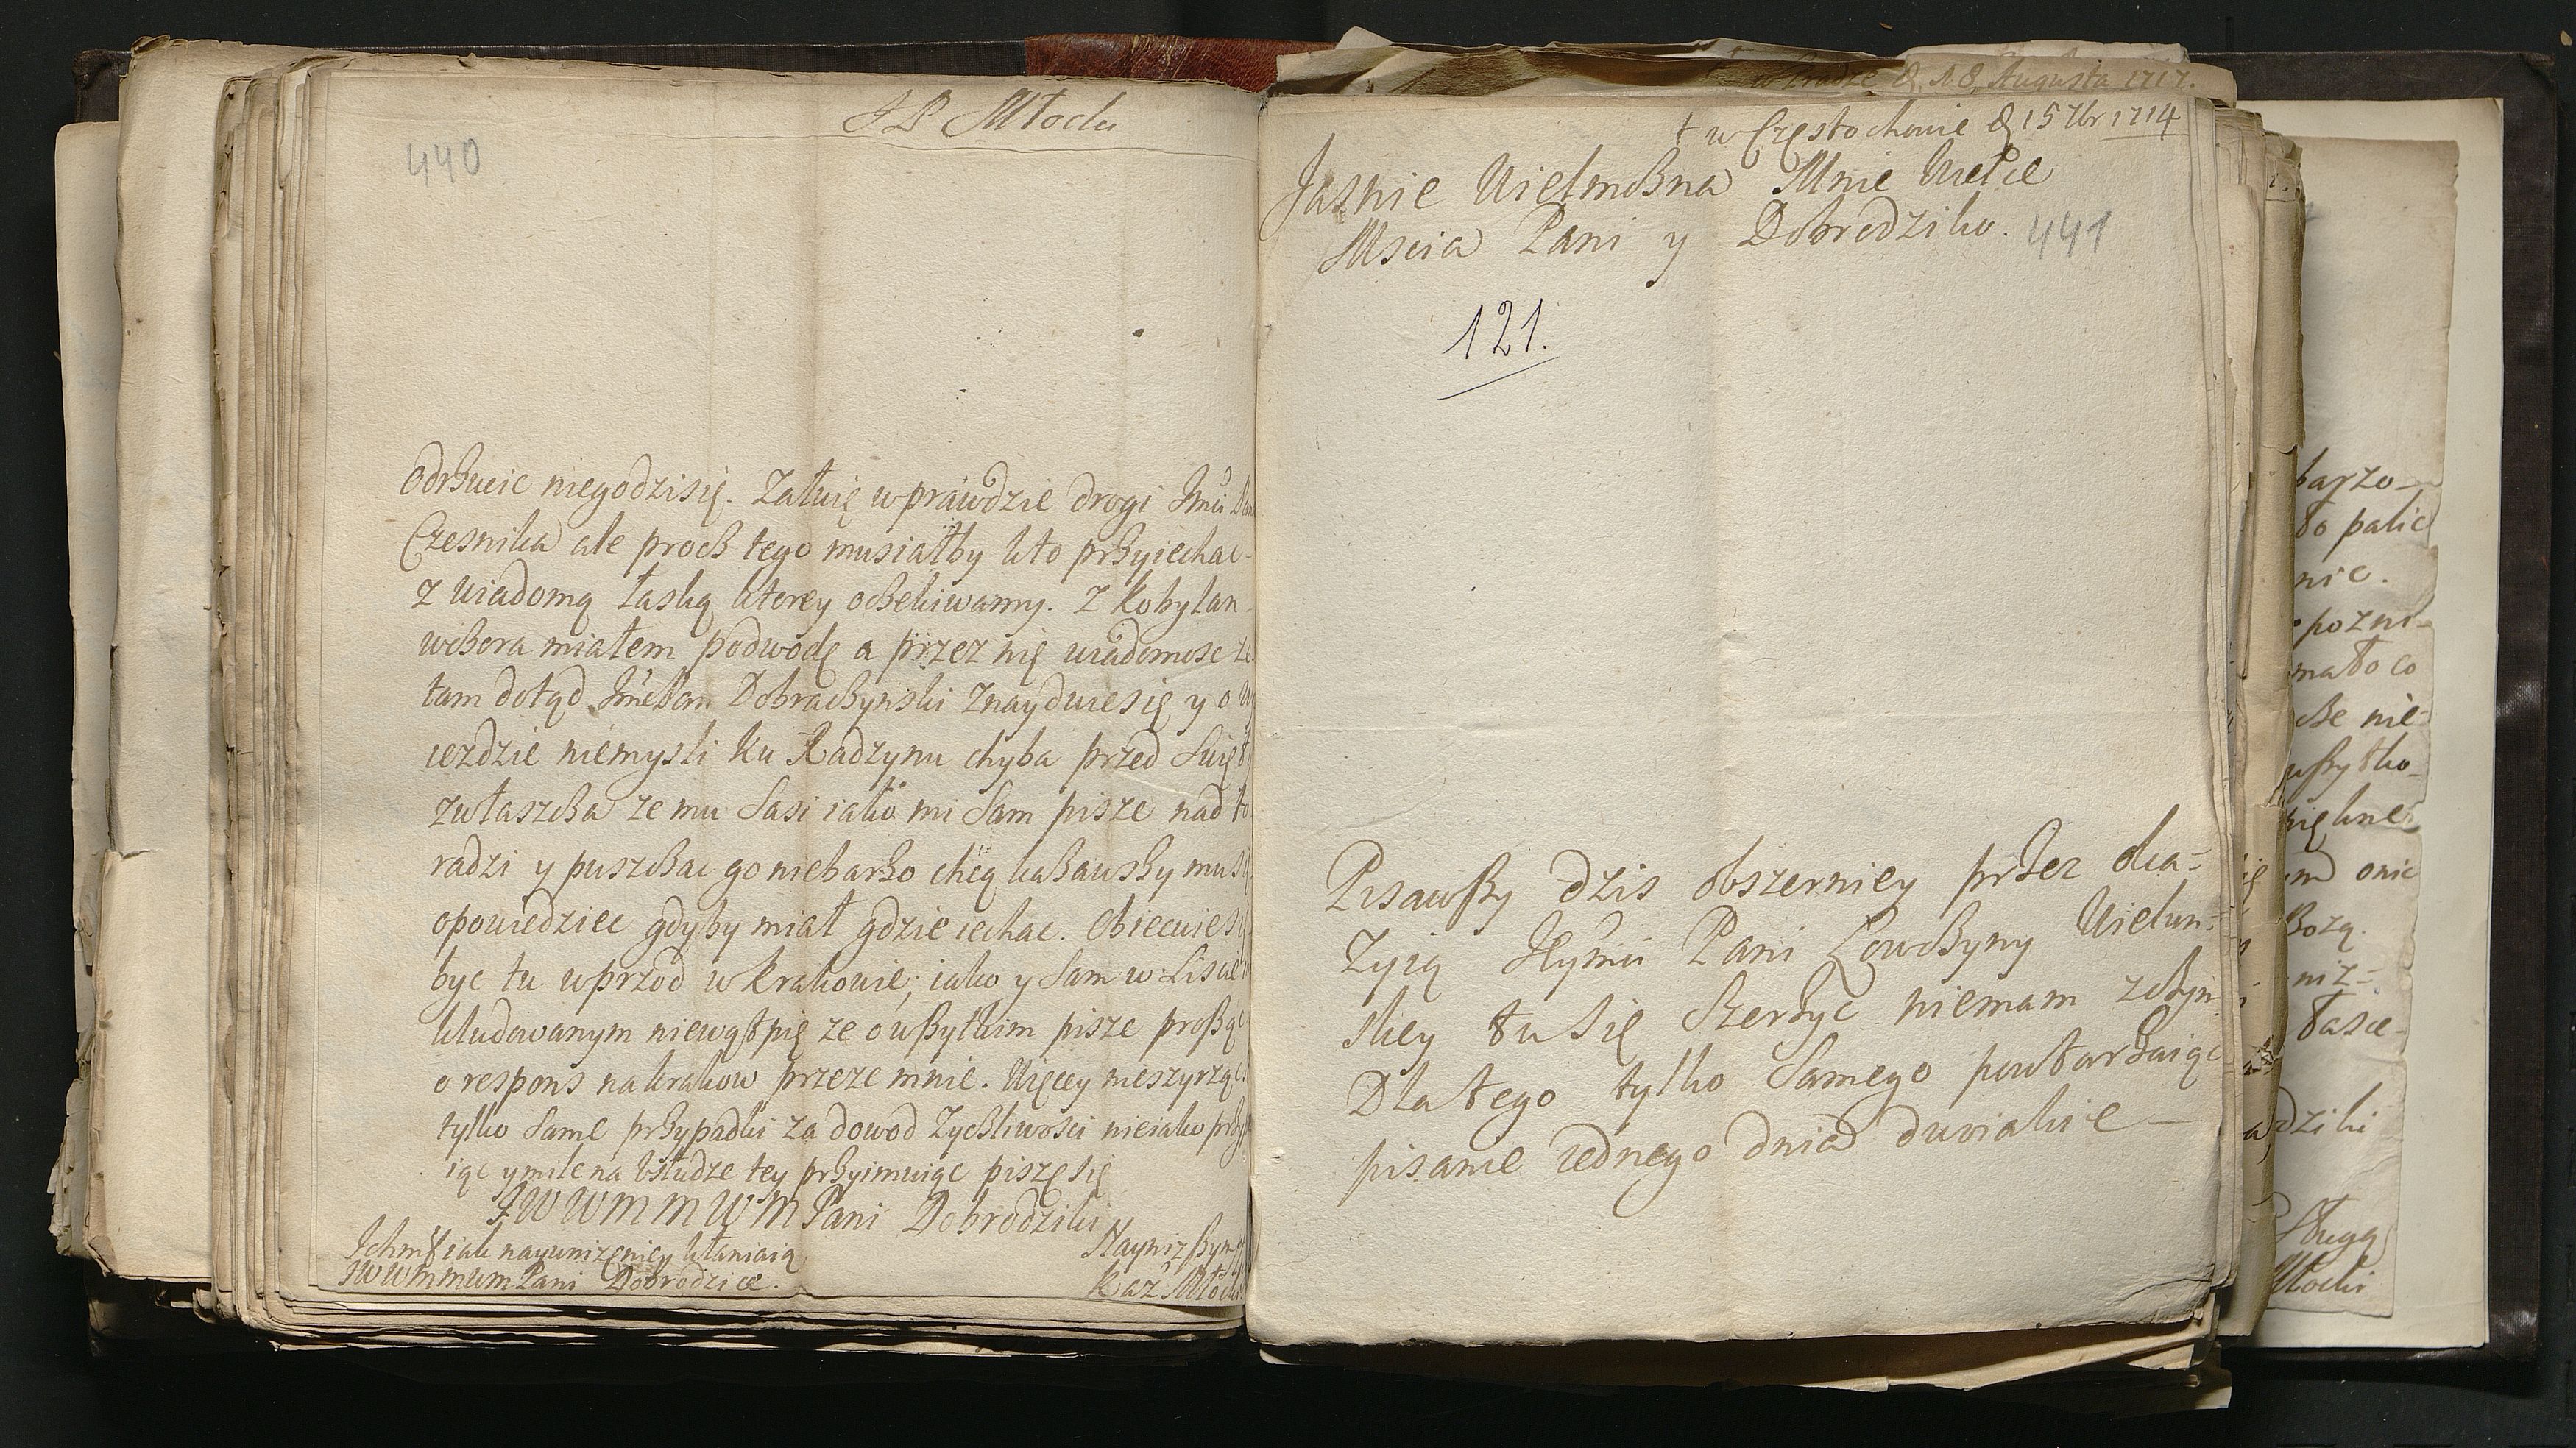 J P Młocki
440
odrzucic niegodzisię. Załuię wprawdzie drogi Jmci
Czesnika ale procz tego musiałby kto przyiechac
z wiadomą łaską ktorey oczekiwamy. Z Kobylan
wczora miałem podwodę a przez nię wiadomosc ze
tam dotąd Jmć Pan Dobraczynski znayduie się y o
iezdzie niemysli ku Radzynu chyba przed Swięt
zwłaszcza ze mu Sasi iako mi Sam pisze nad to
radzi y puszczac go niebarzo chcą kazawszy mu
opowiedziec gdyby miał gdzie iechac. Obiecuie się
byc tu wprzod w Krakowie; iako y Sam w Lisc
kludowanym niewątpię ze o wszytkim pisze prosząc
o respons na Krakow przeze mnie. Więcey nieszyrząc
tylko Same przypadki za dowod zyczliwosci nieiako
iąc y mile na usłudze tey przyimuiąc piszę się
JWWMMWM Pani Dobrodziki
Nayniszym
Kaz Młocki
Ichmć iak nayunizeniey kłaniaią
JWWMMWM Pani Dobrodzice.
w Pradze D. 18 Augusta 1717.
† w Częstochowie D 15 7br 1714
Jasnie Wielmozna Mnie Wielce
Mscia Pani y Dobrodziko.
441
121.
Pisawszy dzis obszerniey przez oka=
zyią Jeymci Pani Łowczyny Wielun=
skiey tu się Szerzyc niemam z czym
Dla tego tylko Samego powtarzaiąc
pisanie iednego dnia dwoiakie
barzo
to palic
nic.
pozni
mało co
cze nie=
wszytko
pięknei
onic
Bozą.
niz=
łasce
dziki
Sługa
Młocki